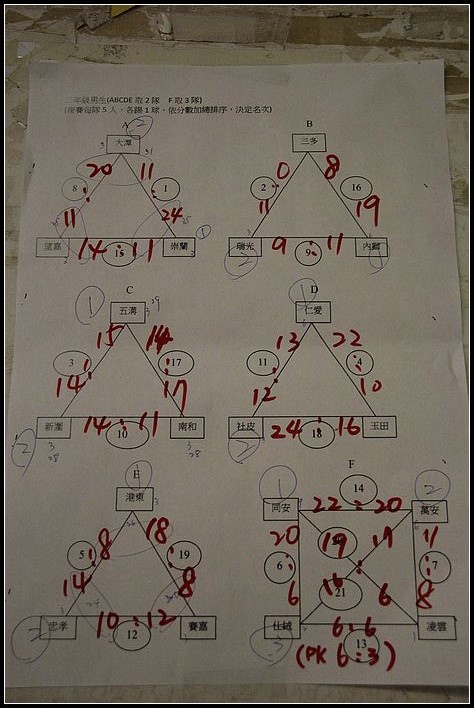 三年級男生(ABCDE 取2隊 F 取3隊)
(複賽每隊5人，各踢1球，依分數加總排序，決定名次)
A ②
B
大潭
三多
20 11
0 8
8 1
2 16
11 24
11 19
望嘉 14 : 11 崇蘭 ①
15
瑞光 9 : 11 內獅
9
② ①
C
D
① 五溝
① 仁愛
15 14
13 22
3 17
11 4
14 17
12 10
新圍 14 : 11 南和
10
②
社皮 24 : 16 玉田
18
②
E
F
① 港東
① 同安 22 : 20 萬安 ②
14
8 18
5 19
14 8
20 19 19 11
6 7
21
6 16 6 8
② 忠孝 10 : 12 賽嘉
12
仕絨 6 : 6 凌雲
13
③
(PK 6 : 3)